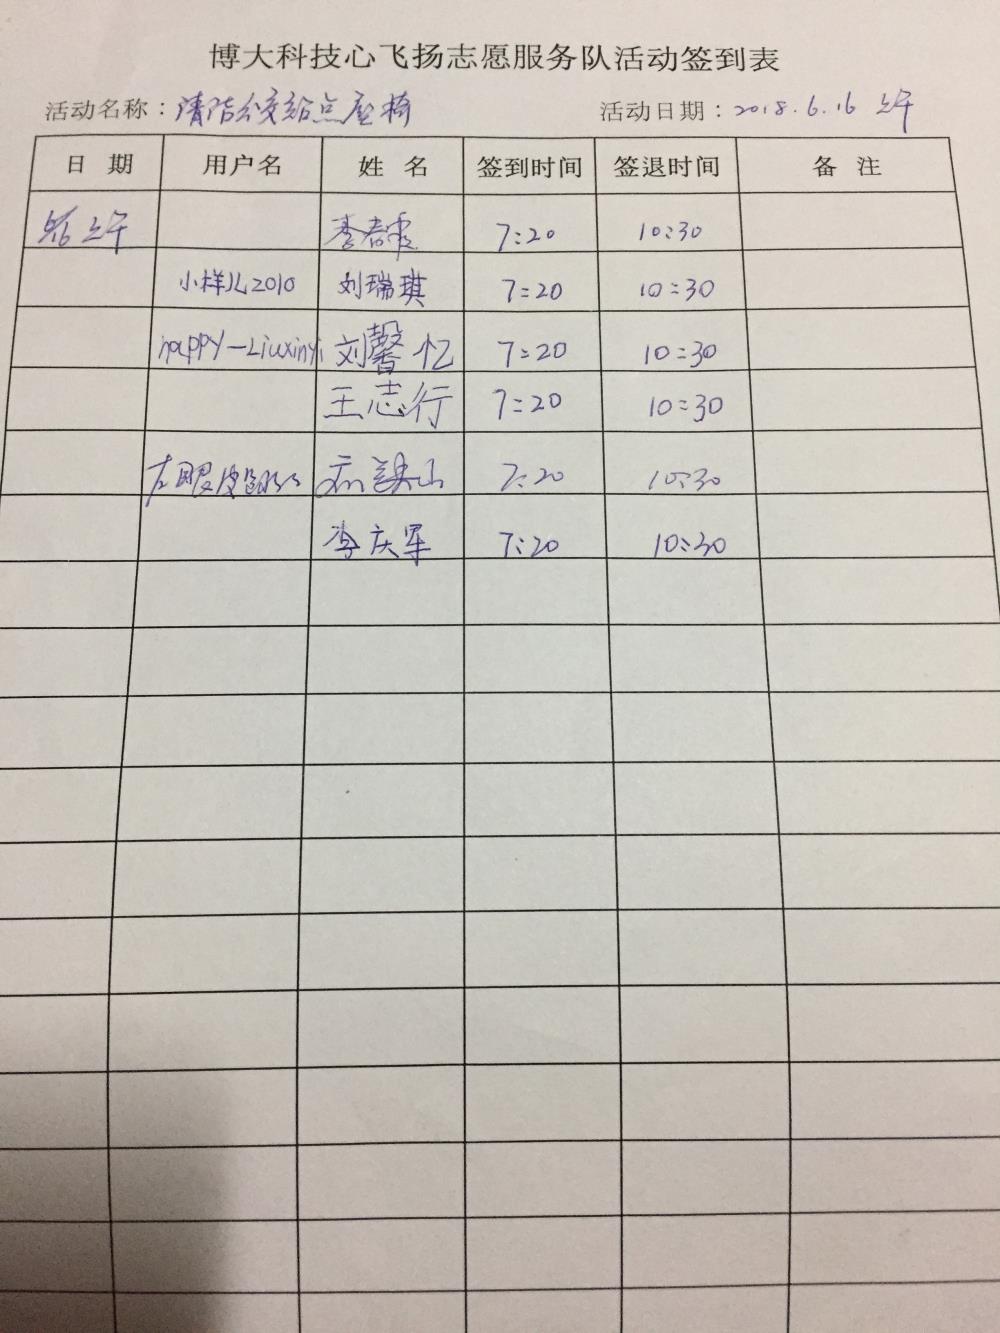 博大科技心飞扬志愿服务队活动签到表
活动名称：清洁公交站点座椅 活动日期：2018.6.16 上午
日 期 用户名 姓 名 签到时间 签退时间 备 注
上午 李春霞 7:20 10:30
小样儿2010 刘瑞琪 7:20 10:30
happy-Liuxinyi 刘馨忆 7:20 10:30
王志行 7:20 10:30
左眼皮跳跳 7:20 10:30
李庆军 7:20 10:30